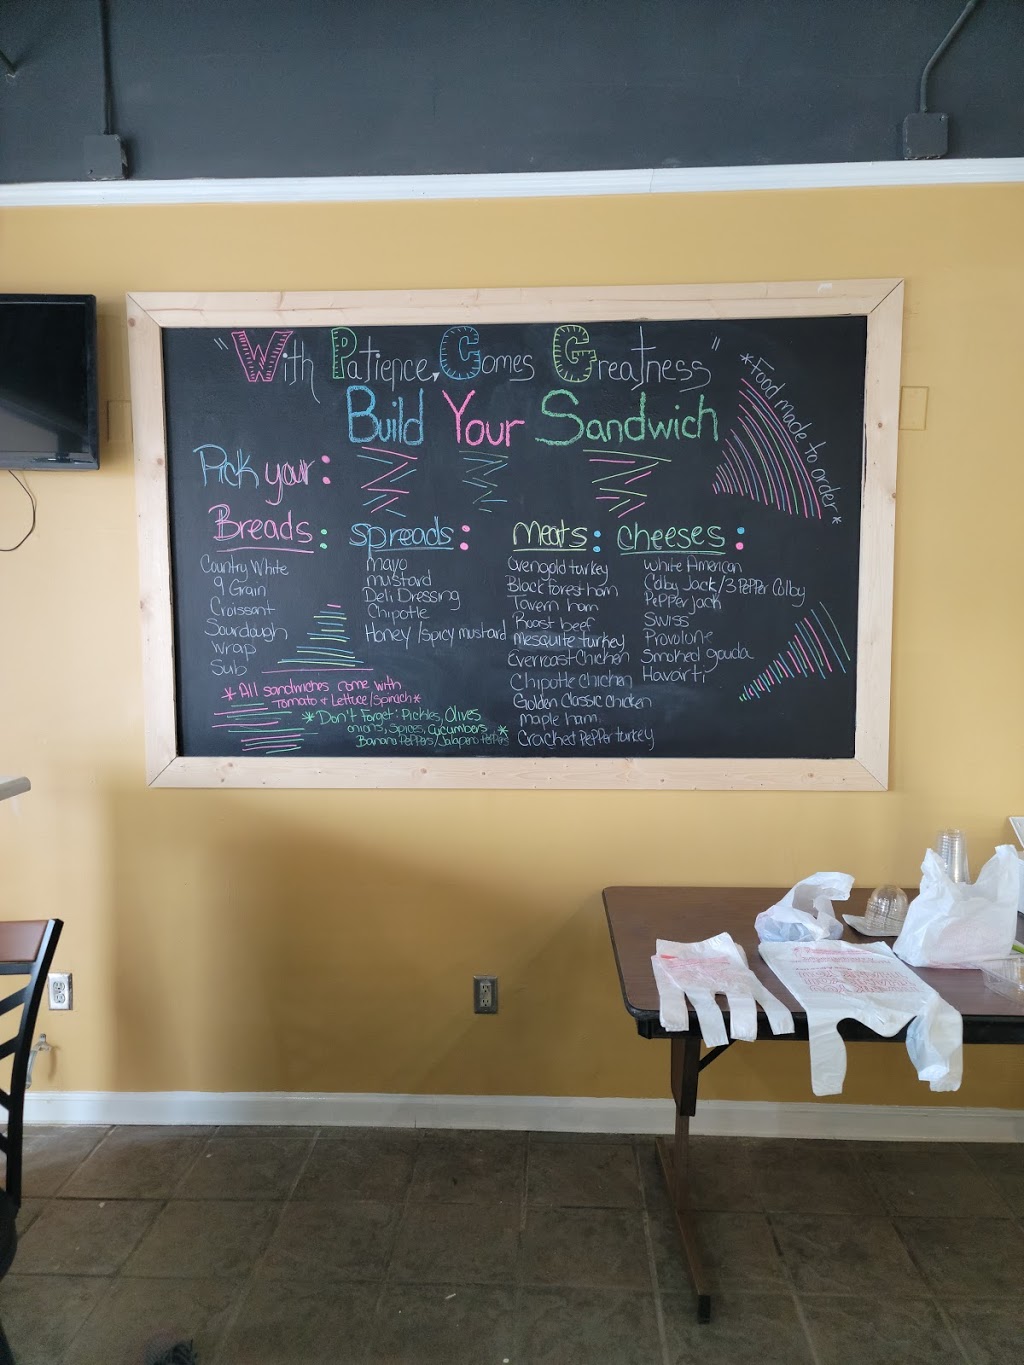 "With Patience, Comes Greatness"
Build Your Sandwich
*Food made to order*
Pick your:
Breads:
Country White
9 Grain
Croissant
Sourdough
wrap
Sub
spreads:
mayo
mustard
Deli Dressing
Chipotle
Honey/spicy mustard
meats:
Ovengold turkey
Black forest ham
Tavern ham
Roast beef
mesquite turkey
Everroast Chicken
Chipotle Chicken
Golden Classic Chicken
maple ham
Cracked Pepper turkey
cheeses:
White American
Colby Jack/3 Pepper Colby
Pepper jack
Swiss
Provolone
Smoked gouda
Havarti
*All sandwiches come with
Tomato + Lettuce/Spinach*
*Don't Forget: Pickles, Olives
onions, Spices, Cucumbers *
Banana Peppers/Jalapeno Peppers